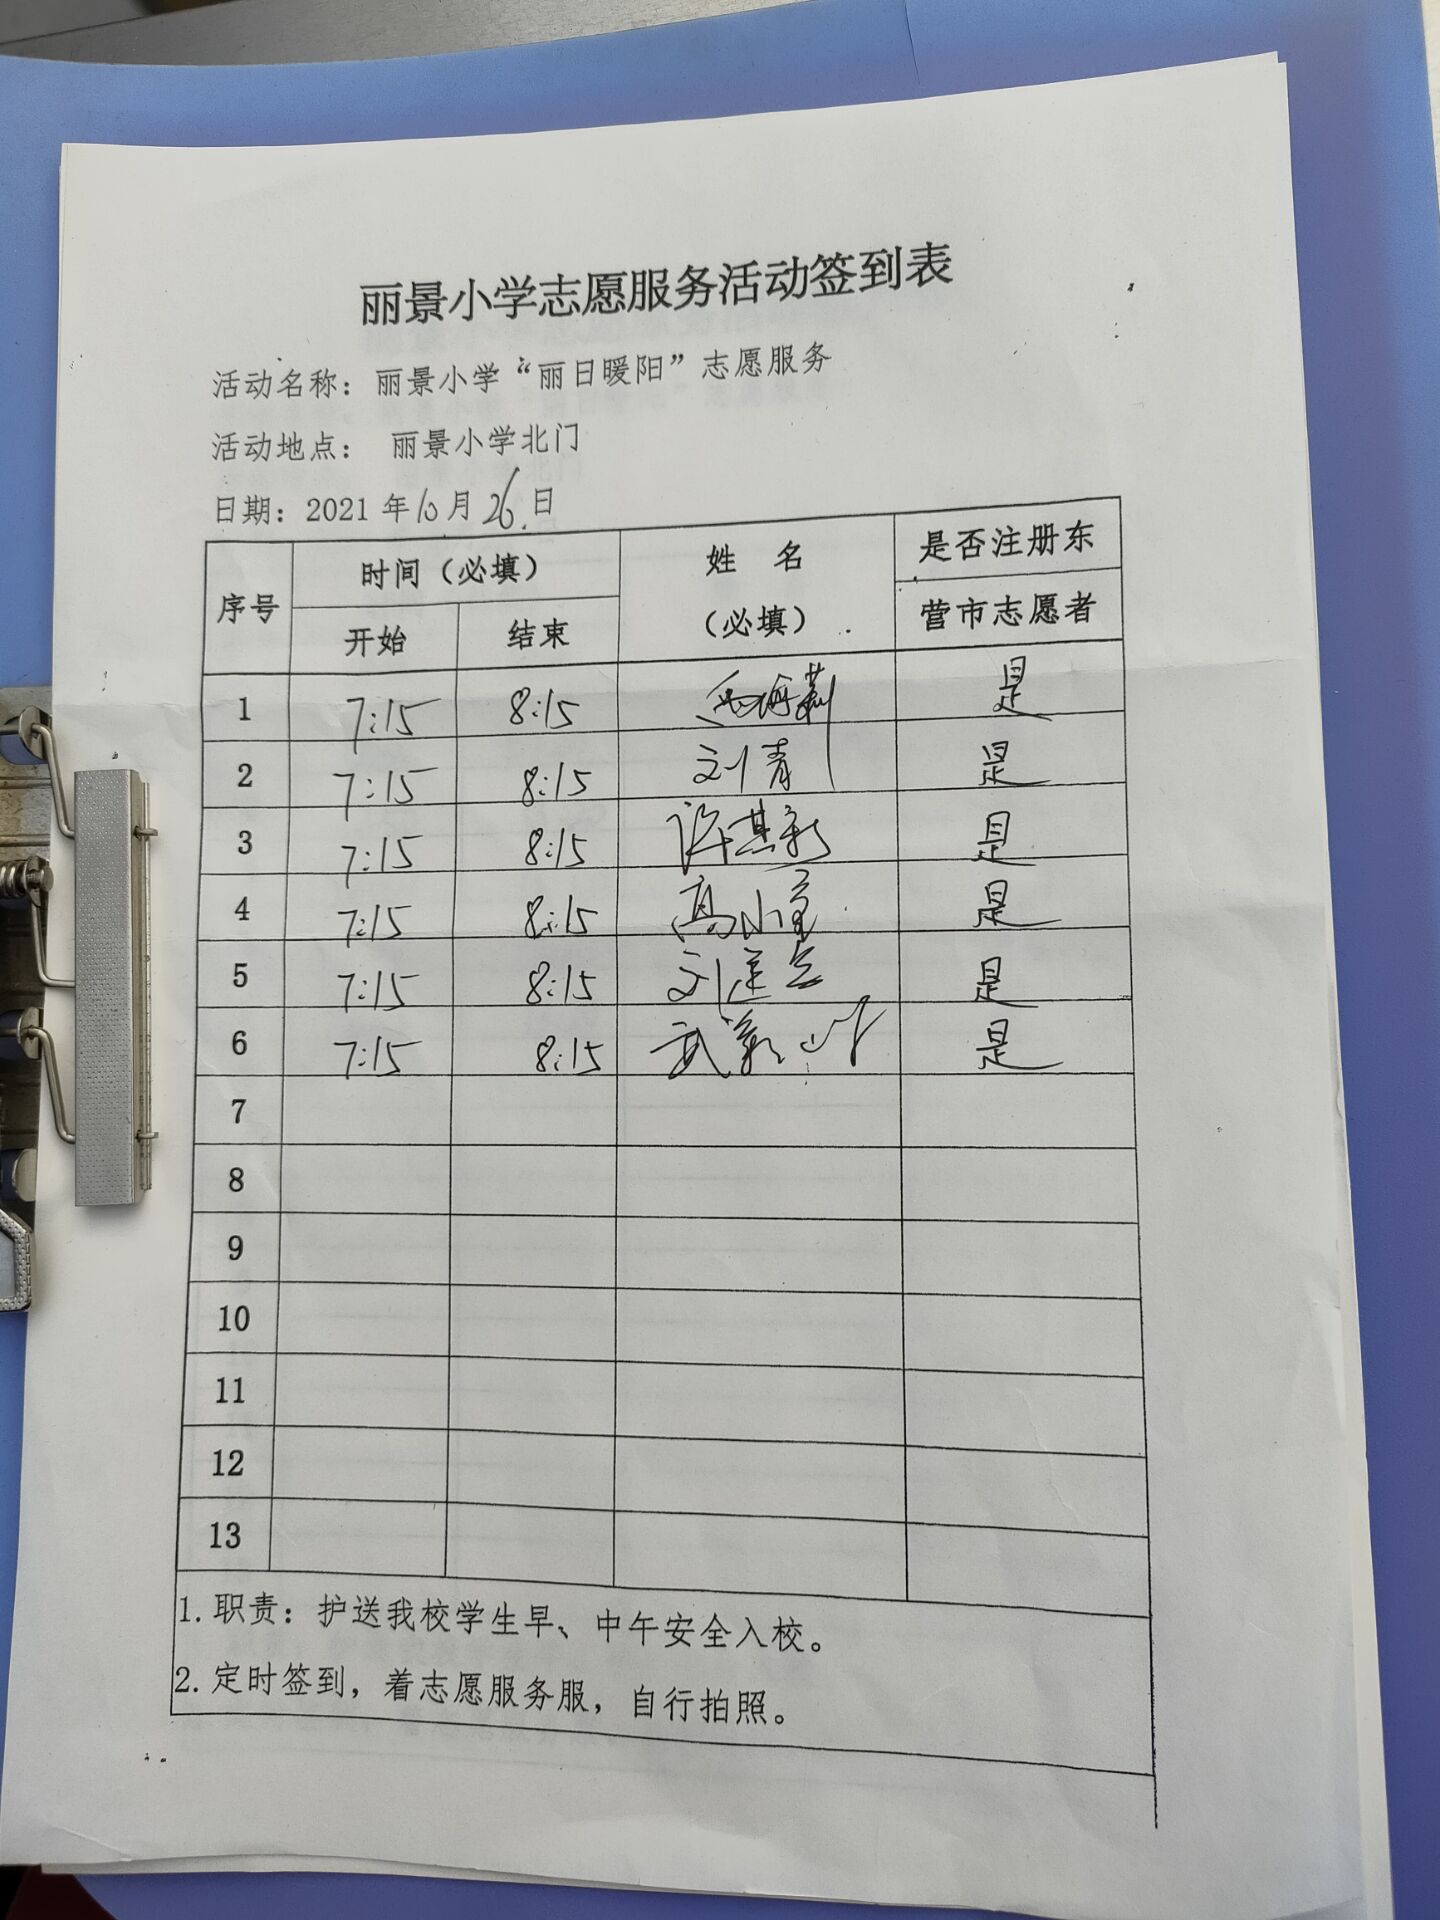 丽景小学志愿服务活动签到表
活动名称：丽景小学“丽日暖阳”志愿服务
活动地点： 丽景小学北门
日期：2021年10月26日
序号 时间（必填） 姓 名（必填） 是否注册东营市志愿者
开始 结束
1 7:15 8:15 是
2 7:15 8:15 刘青 是
3 7:15 8:15 许其新 是
4 7:15 8:15 高小 是
5 7:15 8:15 刘 是
6 7:15 8:15 武 是
7
8
9
10
11
12
13
1. 职责：护送我校学生早、中午安全入校。
2. 定时签到，着志愿服务服，自行拍照。